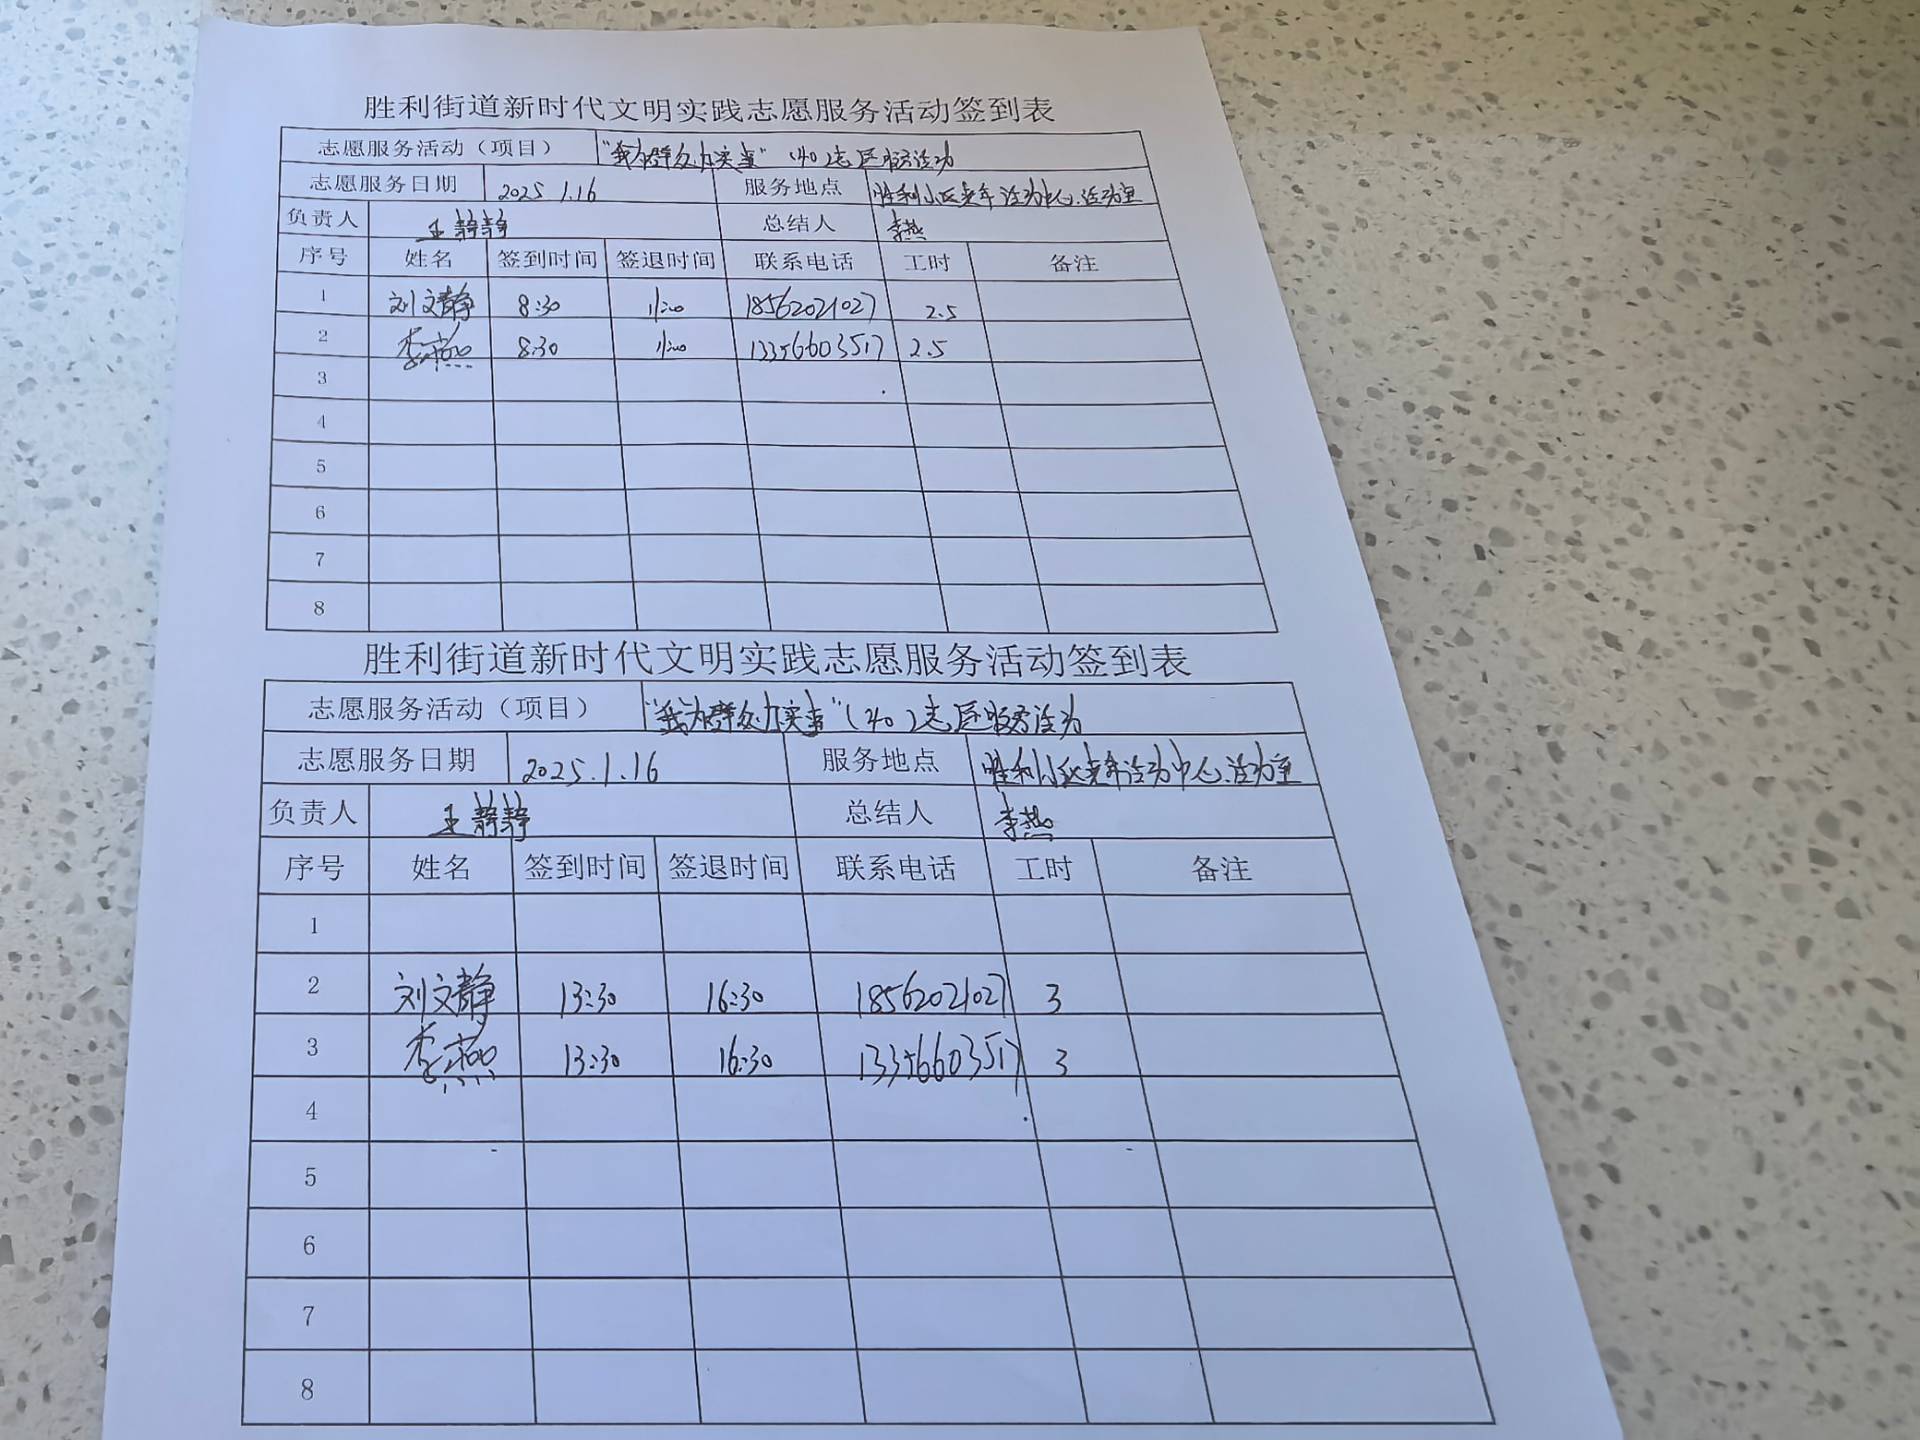 胜利街道新时代文明实践志愿服务活动签到表
志愿服务活动（项目） “我为群众办实事”（40）志愿服务活动
志愿服务日期 2025.1.16 服务地点 胜利小区老年活动中心.活动室
负责人 王静静 总结人 李燕
序号 姓名 签到时间 签退时间 联系电话 工时 备注
1 刘文静 8:30 11:00 18562021027 2.5
2 李燕 8:30 11:00 13356603517 2.5
3
4
5
6
7
8
胜利街道新时代文明实践志愿服务活动签到表
志愿服务活动（项目） “我为群众办实事”（40）志愿服务活动
志愿服务日期 2025.1.16 服务地点 胜利小区老年活动中心.活动室
负责人 王静静 总结人 李燕
序号 姓名 签到时间 签退时间 联系电话 工时 备注
1
2 刘文静 13:30 16:30 18562021027 3
3 李燕 13:30 16:30 13356603517 3
4
5
6
7
8